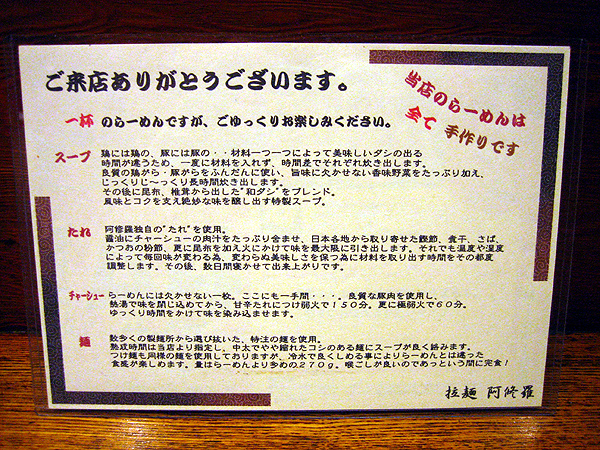 ご来店ありがとうございます。
当店のらーめんは
全て 手作りです
一杯 のらーめんですが、ごゆっくりお楽しみください。
スープ 鶏には鶏の、豚には豚の・・材料一つ一つによって美味しいダシの出る
時間が違うため、一度に材料を入れず、時間差でそれぞれ炊き出します。
良質の鶏がら・豚がらをふんだんに使い、旨味に欠かせない香味野菜をたっぷり加え、
じっくりじ~っくり長時間炊き出します。
その後に昆布、椎茸から出した"和ダシ"をブレンド。
風味とコクを支え絶妙な味を醸し出す特製スープ。
たれ 阿修羅独自の"たれ"を使用。
醤油にチャーシューの肉汁をたっぷり含ませ、日本各地から取り寄せた鰹節、煮干、さば、
かつおの粉節、更に昆布を加え火にかけて味を最大限に引き出します。それでも温度や湿度
によって毎回味が変わる為、変わらぬ美味しさを保つ為に材料を取り出す時間をその都度
調整します。その後、数日間寝かせて出来上がりです。
チャーシュー らーめんには欠かせない一枚。ここにも一手間・・・。良質な豚肉を使用し、
熱湯で味を閉じ込めてから、甘辛たれにつけ弱火で150分。更に極弱火で60分。
ゆっくり時間をかけて味を染み込ませます。
麺 数多くの製麺所から選び抜いた、特注の麺を使用。
熟成時間は当店より指定し、中太でやや縮れたコシのある麺にスープが良く絡みます。
つけ麺も同様の麺を使用しておりますが、冷水で良くしめる事によりらーめんとは違った
食感が楽しめます。量はらーめんより多めの270g。喉ごしが良いのであっという間に完食!
拉麺 阿修羅